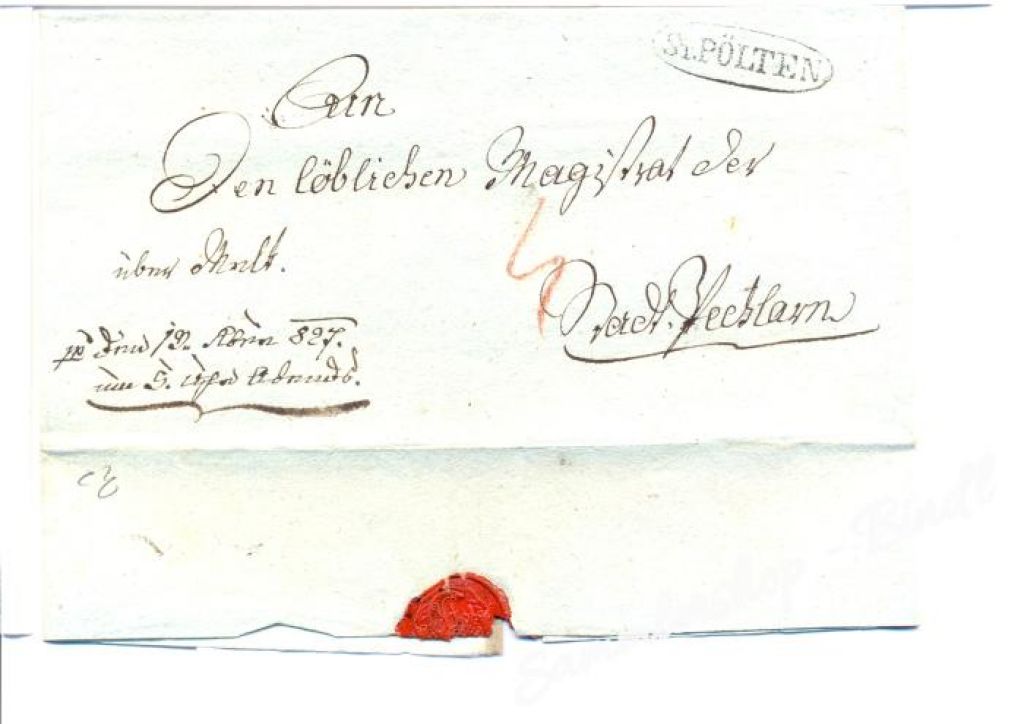 ST.PÖLTEN
An
Den löblichen Magistrat der
über Melk.
Stadt Pechlarn
den 12. 827.
um 5. Uhr Abends.